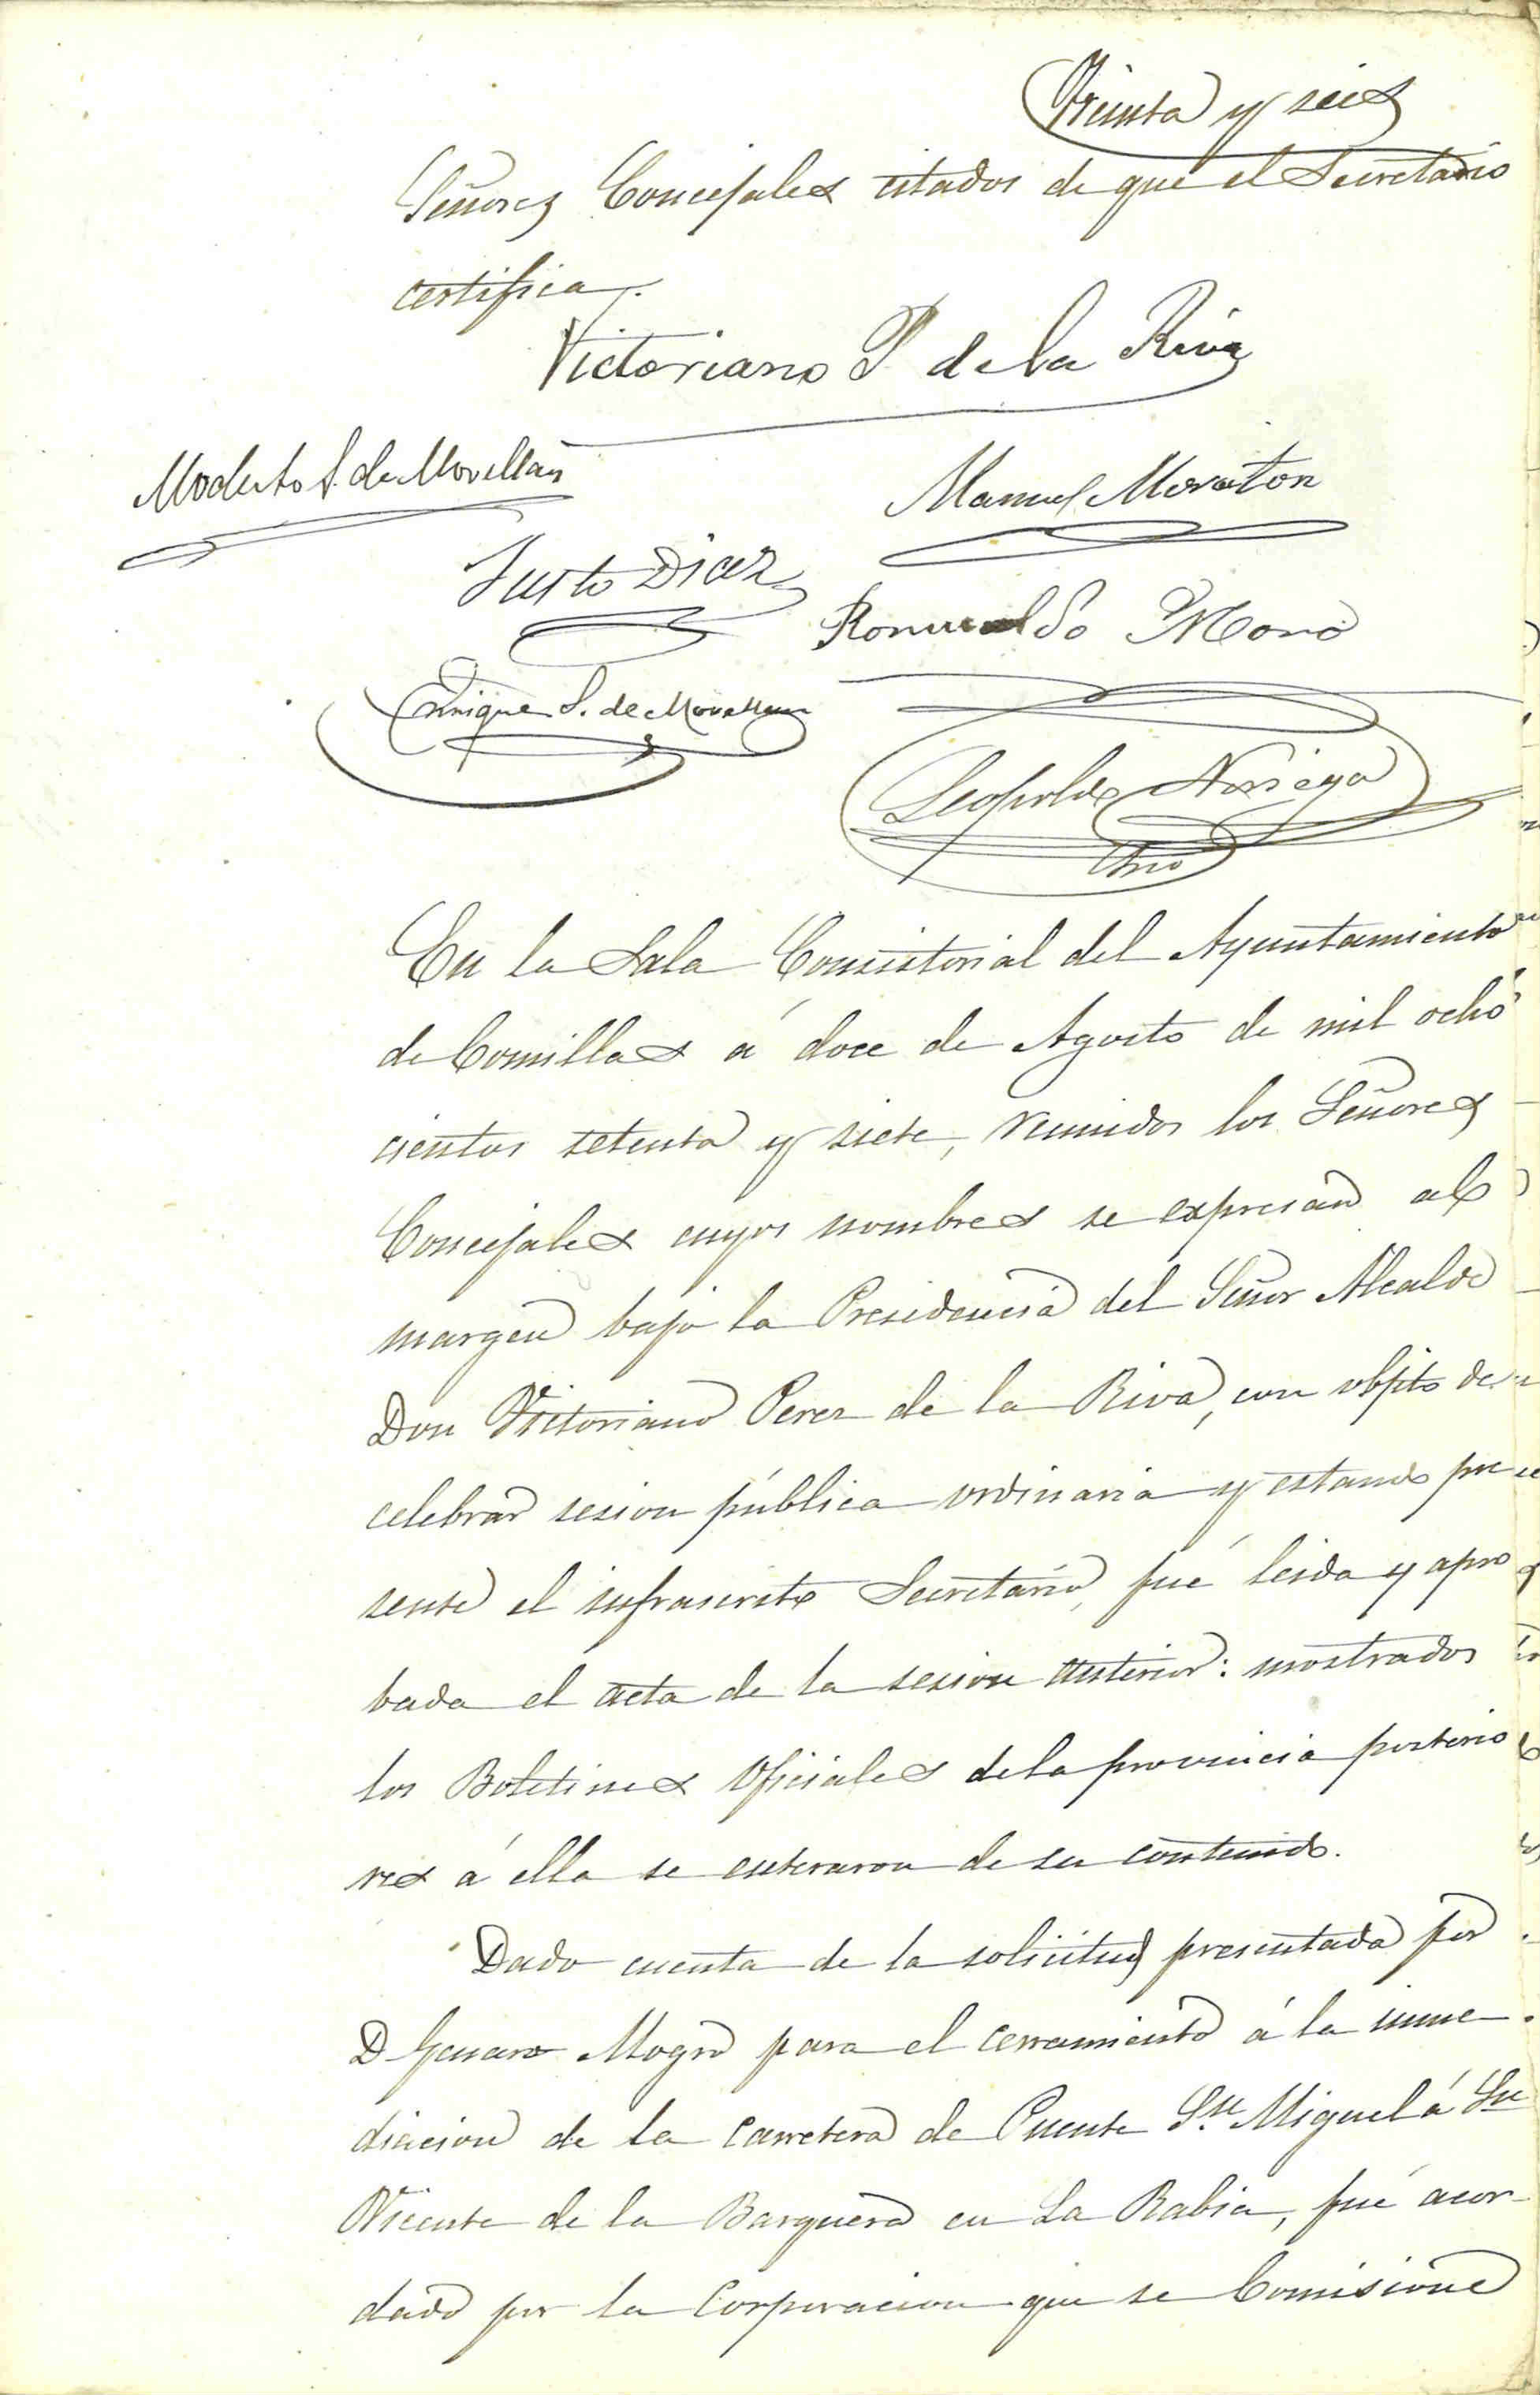 Treinta y seis
Señores Concejales citados de que el Secretario
certifica.
Victoriano P de la Riva
Modesto S. de Movellan
Manuel Moraton
Justo Diaz
Romualdo Moro
Enrique S. de Movellan
Leopoldo Noriega
Srio
En la Sala Consistorial del Ayuntamiento
de Comillas a doce de Agosto de mil ocho
cientos setenta y siete, reunidos los Señores
Concejales cuyos nombres se expresan al
margen bajo la Presidencia del Señor Alcalde
Don Victoriano Perez de la Riva, con objeto de
celebrar sesion pública ordinaria y estando pre
sente el infrascrito Secretario, fué leida y apro
bada el acta de la sesion anterior: mostrados
los Boletines Oficiales de la provincia posterio
res á ella se enteraron de su contenido.
Dado cuenta de la solicitud presentada por
D Genaro Mogro para el cerramiento á la inme
diacion de la carretera de Puente Sn. Miguel á Sn
Vicente de la Barquera en La Rabia, fué acor
dado por la Corporacion que se Comisione